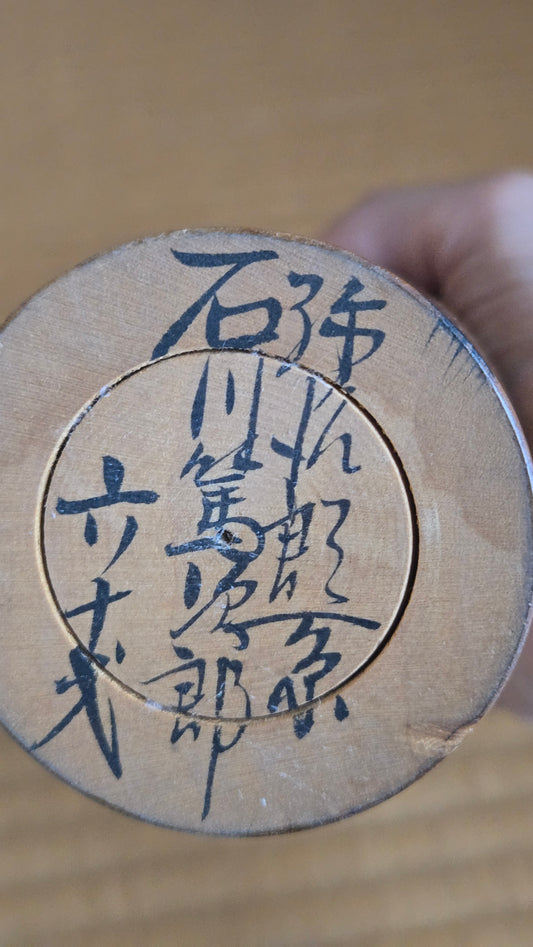 弥治郎系
石川篤次郎
六十才